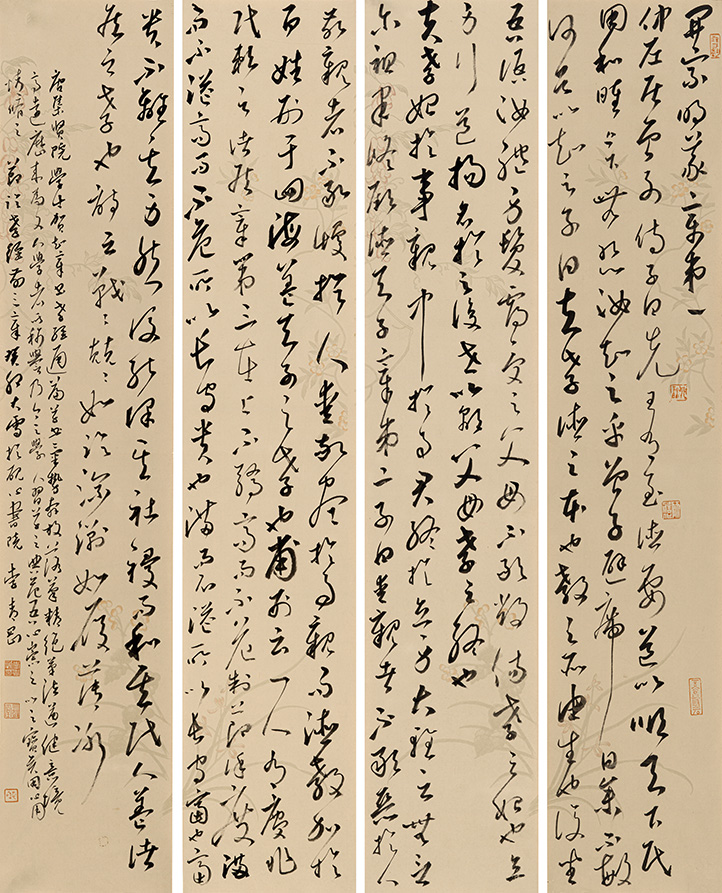 開宗明義章第一
仲尼居曾子侍子曰先王有至德要道以順天下民
用和睦上下無怨汝知之乎曾子避席曰參不敏
何足以知之子曰夫孝德之本也教之所由生也復坐
吾語汝體身髮膚受之父母不敢毀傷孝之始也立
身行道揚名於後世以顯父母孝之終也
夫孝始於事親中於事君終於立身大雅云無念
爾祖聿修厥德天子章第二子曰愛親者不敢惡於人
敬親者不敢慢於人愛敬盡於事親而德教加於
百姓刑于四海蓋天子之孝也甫刑云一人有慶兆
民賴之諸侯章第三在上不驕高而不危制節謹度滿
而不溢高而不危所以長守貴也滿而不溢所以長守富也富
貴不離其身然後能保其社稷而和其民人蓋諸
侯之孝也詩云戰〻兢〻如臨深淵如履薄冰
唐集賢院學士賀知章書孝經通篇草書
高遠歷來為文人學者所稱譽乃今之學人習草之典範吾心
臨之節臨孝經前三章 大雪於 書院 李青